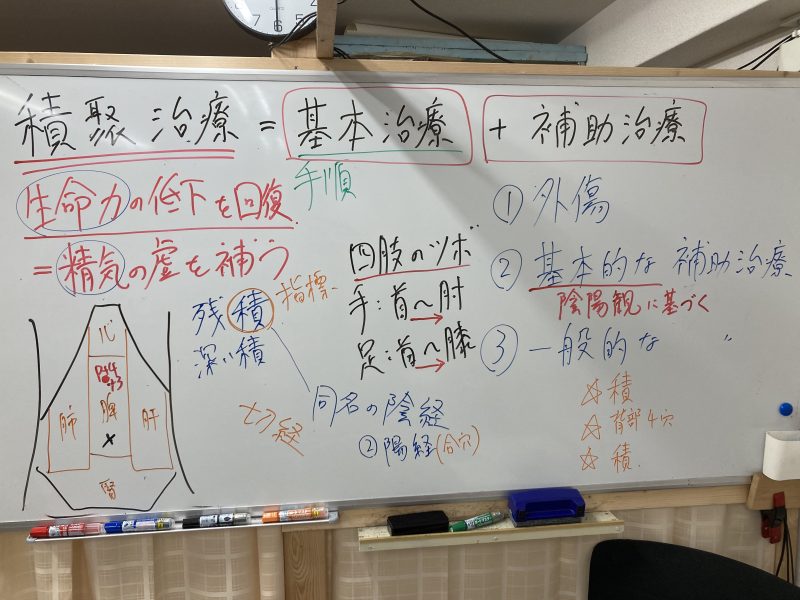 積聚治療 = 基本治療 + 補助治療
手順
生命力の低下を回復
= 精気の虚を補う
四肢のツボ
手:首へ肘
足:首へ膝
残積 指標
深い積
同名の陰経
② 陽経(合穴)
① 外傷
② 基本的な 補助治療
陰陽観に基づく
③ 一般的な 〃
☆ 積
☆ 背部4穴
☆ 積
心
脾
肺
肝
腎